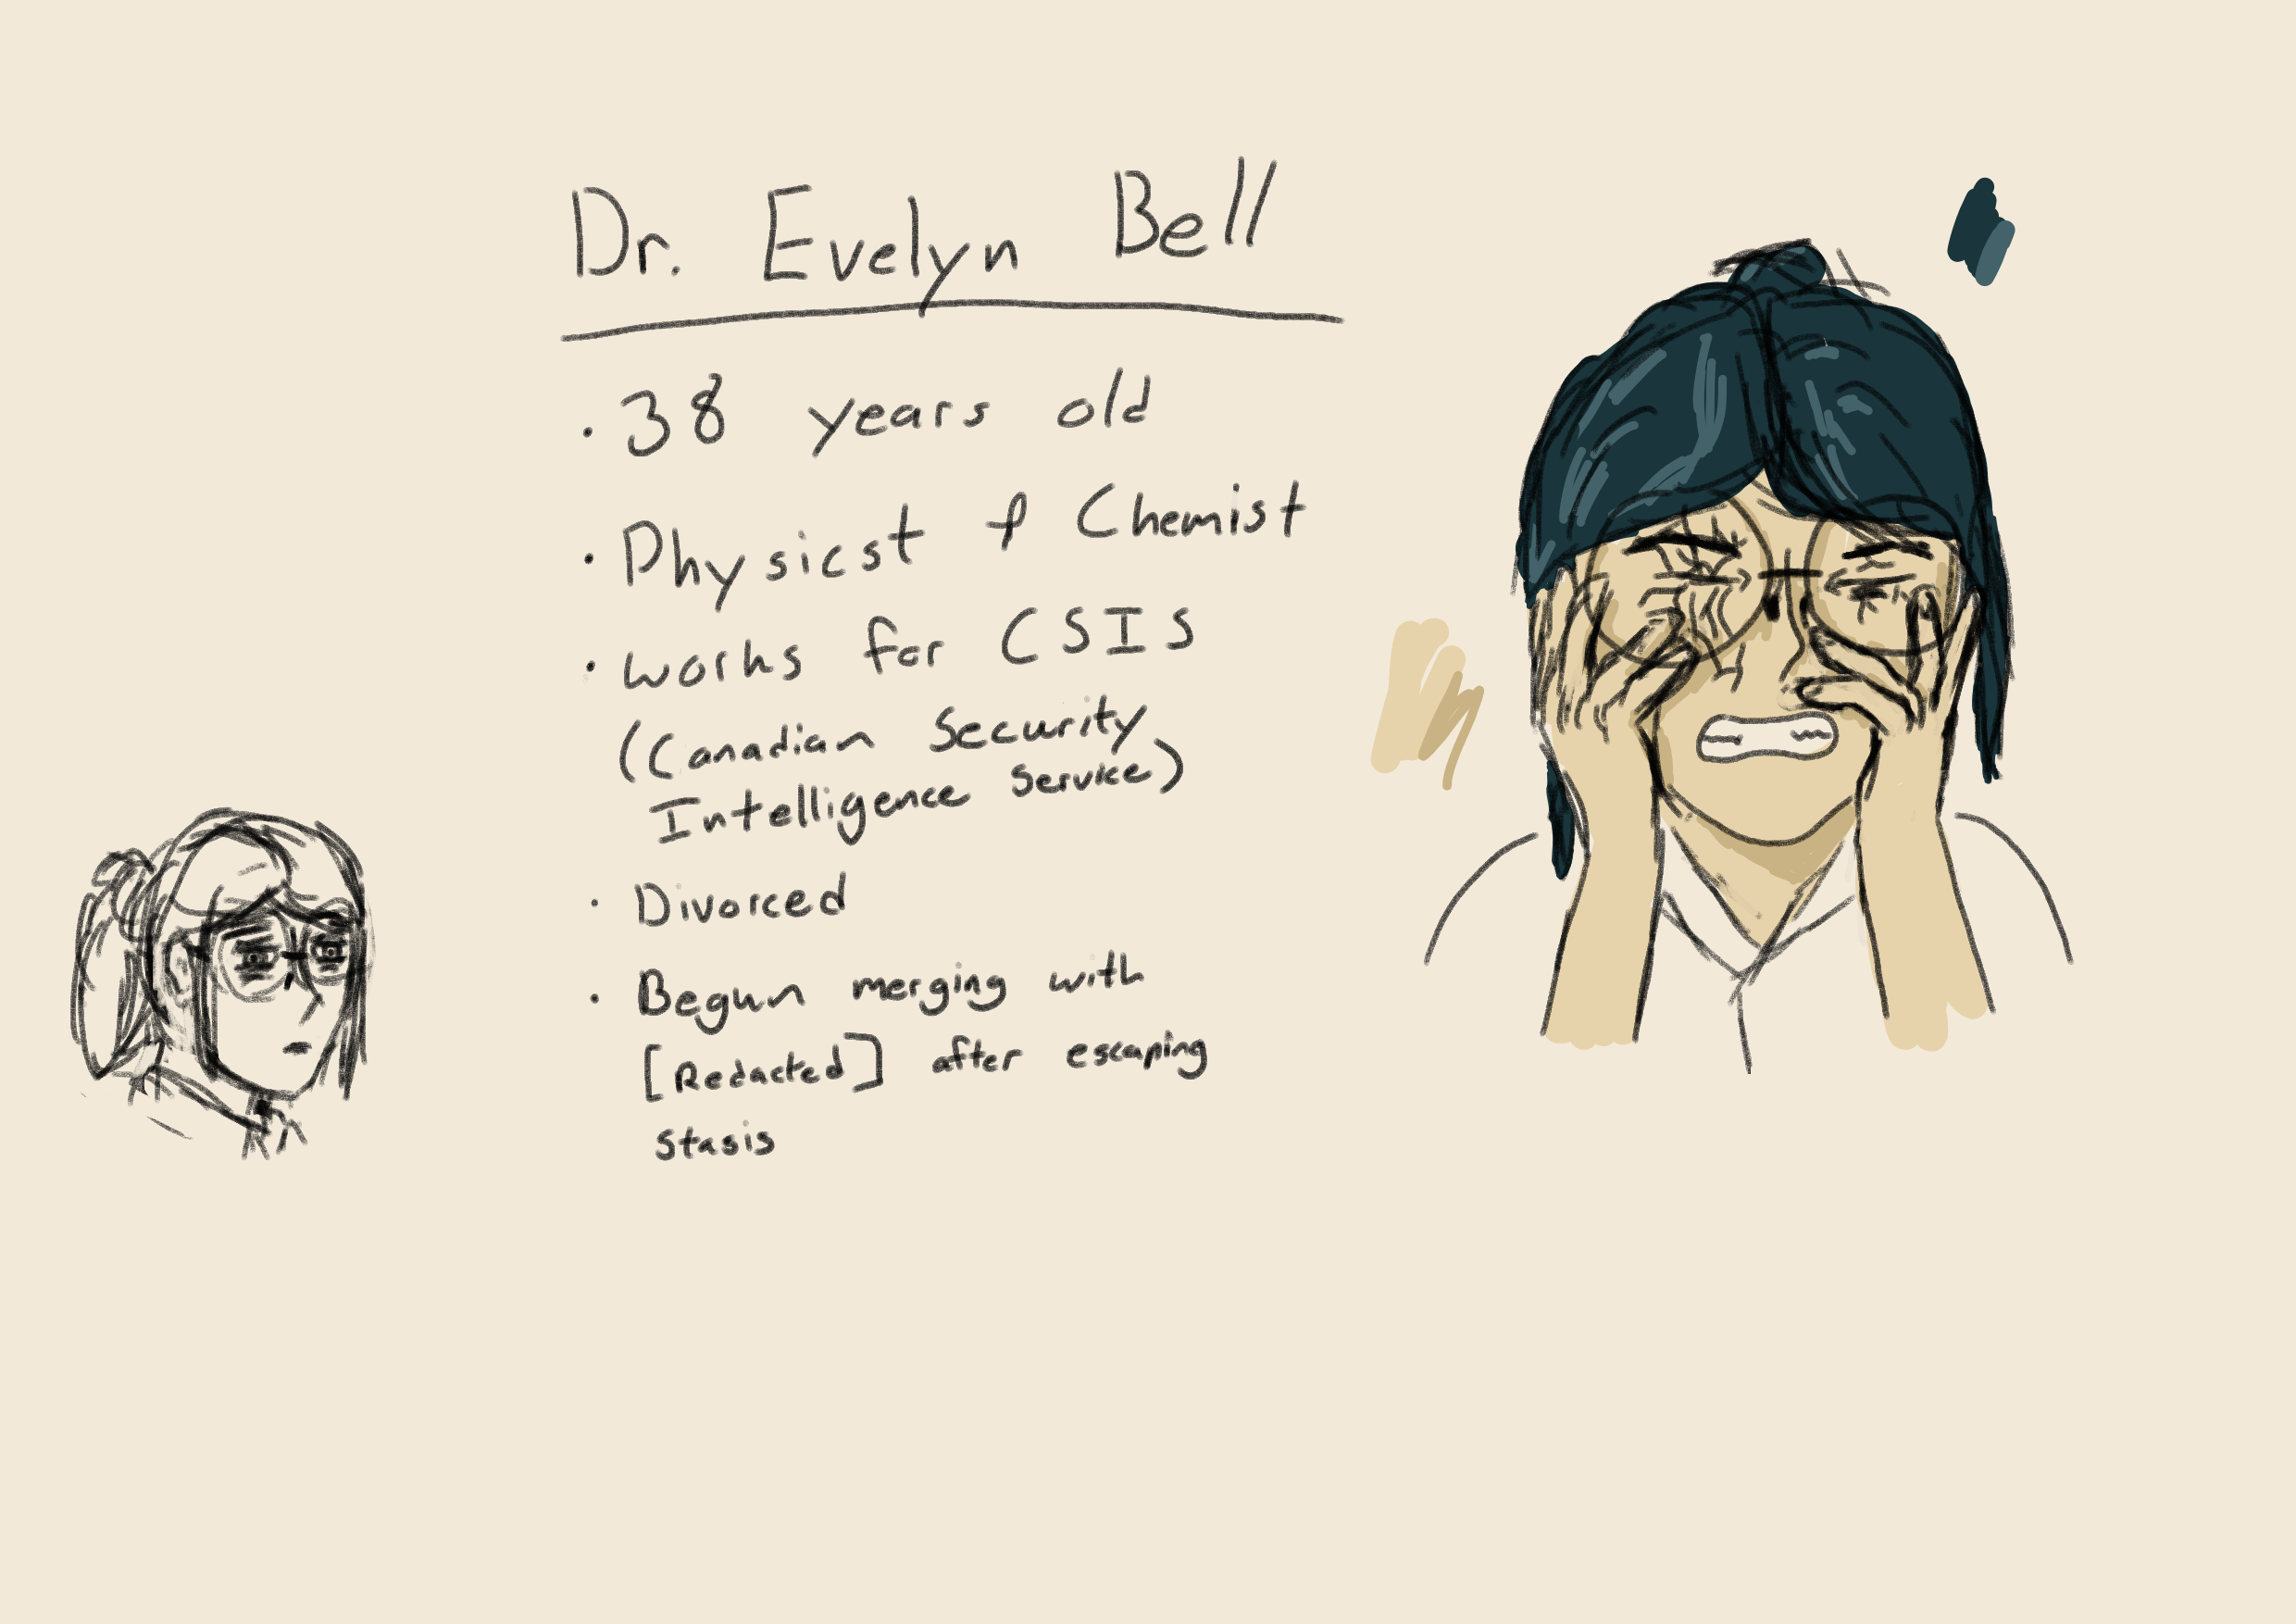 Dr. Evelyn Bell
• 38 years old
• Physicst & Chemist
• works for CSIS
(Canadian Security
Intelligence Service)
• Divorced
• Begun merging with
[Redacted] after escaping
stasis